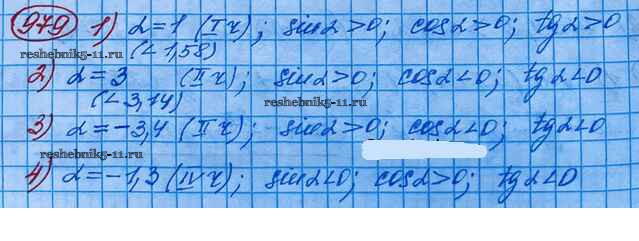 979 1) α=1 (I ч); sinα>0; cosα>0; tgα>0
(<1,58)
reshebnikg-11.ru
2) α=3 (II ч); sinα>0; cosα<0; tgα<0
(<3,14)
reshebnikg-11.ru
3) α=-3,4 (II ч); sinα>0; cosα<0; tgα<0
reshebnikg-11.ru
4) α=-1,3 (IV ч); sinα<0; cosα>0; tgα<0